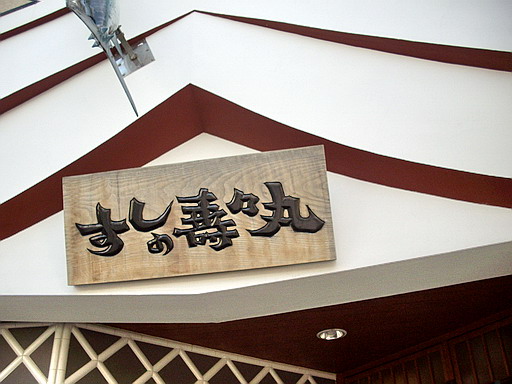 すしの寿々丸